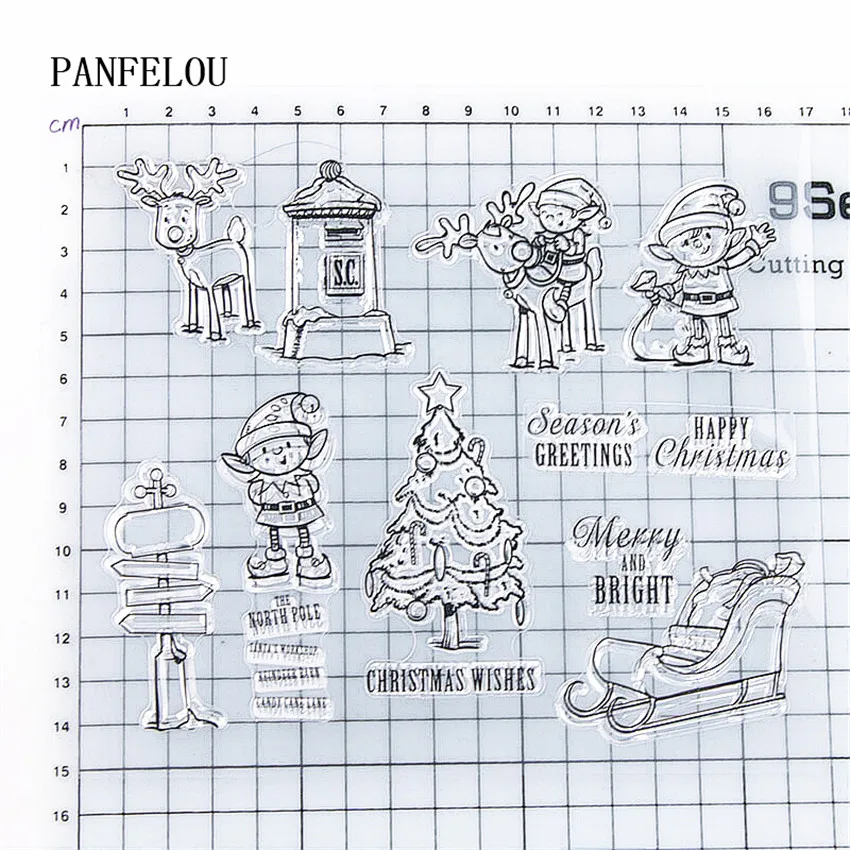 PANFELOU
cm
1 2 3 4 5 6 7 8 9 10 11 12 13 14 15 16 17 18
1
2
3
4
5
6
7
8
9
10
11
12
13
14
15
16
9Se
Cutting
S.C.
Season's
GREETINGS
HAPPY
Christmas
Merry
AND
BRIGHT
THE
NORTH POLE
SANTA'S WORKSHOP
REINDEER BARN
CANDY CANE LANE
CHRISTMAS WISHES